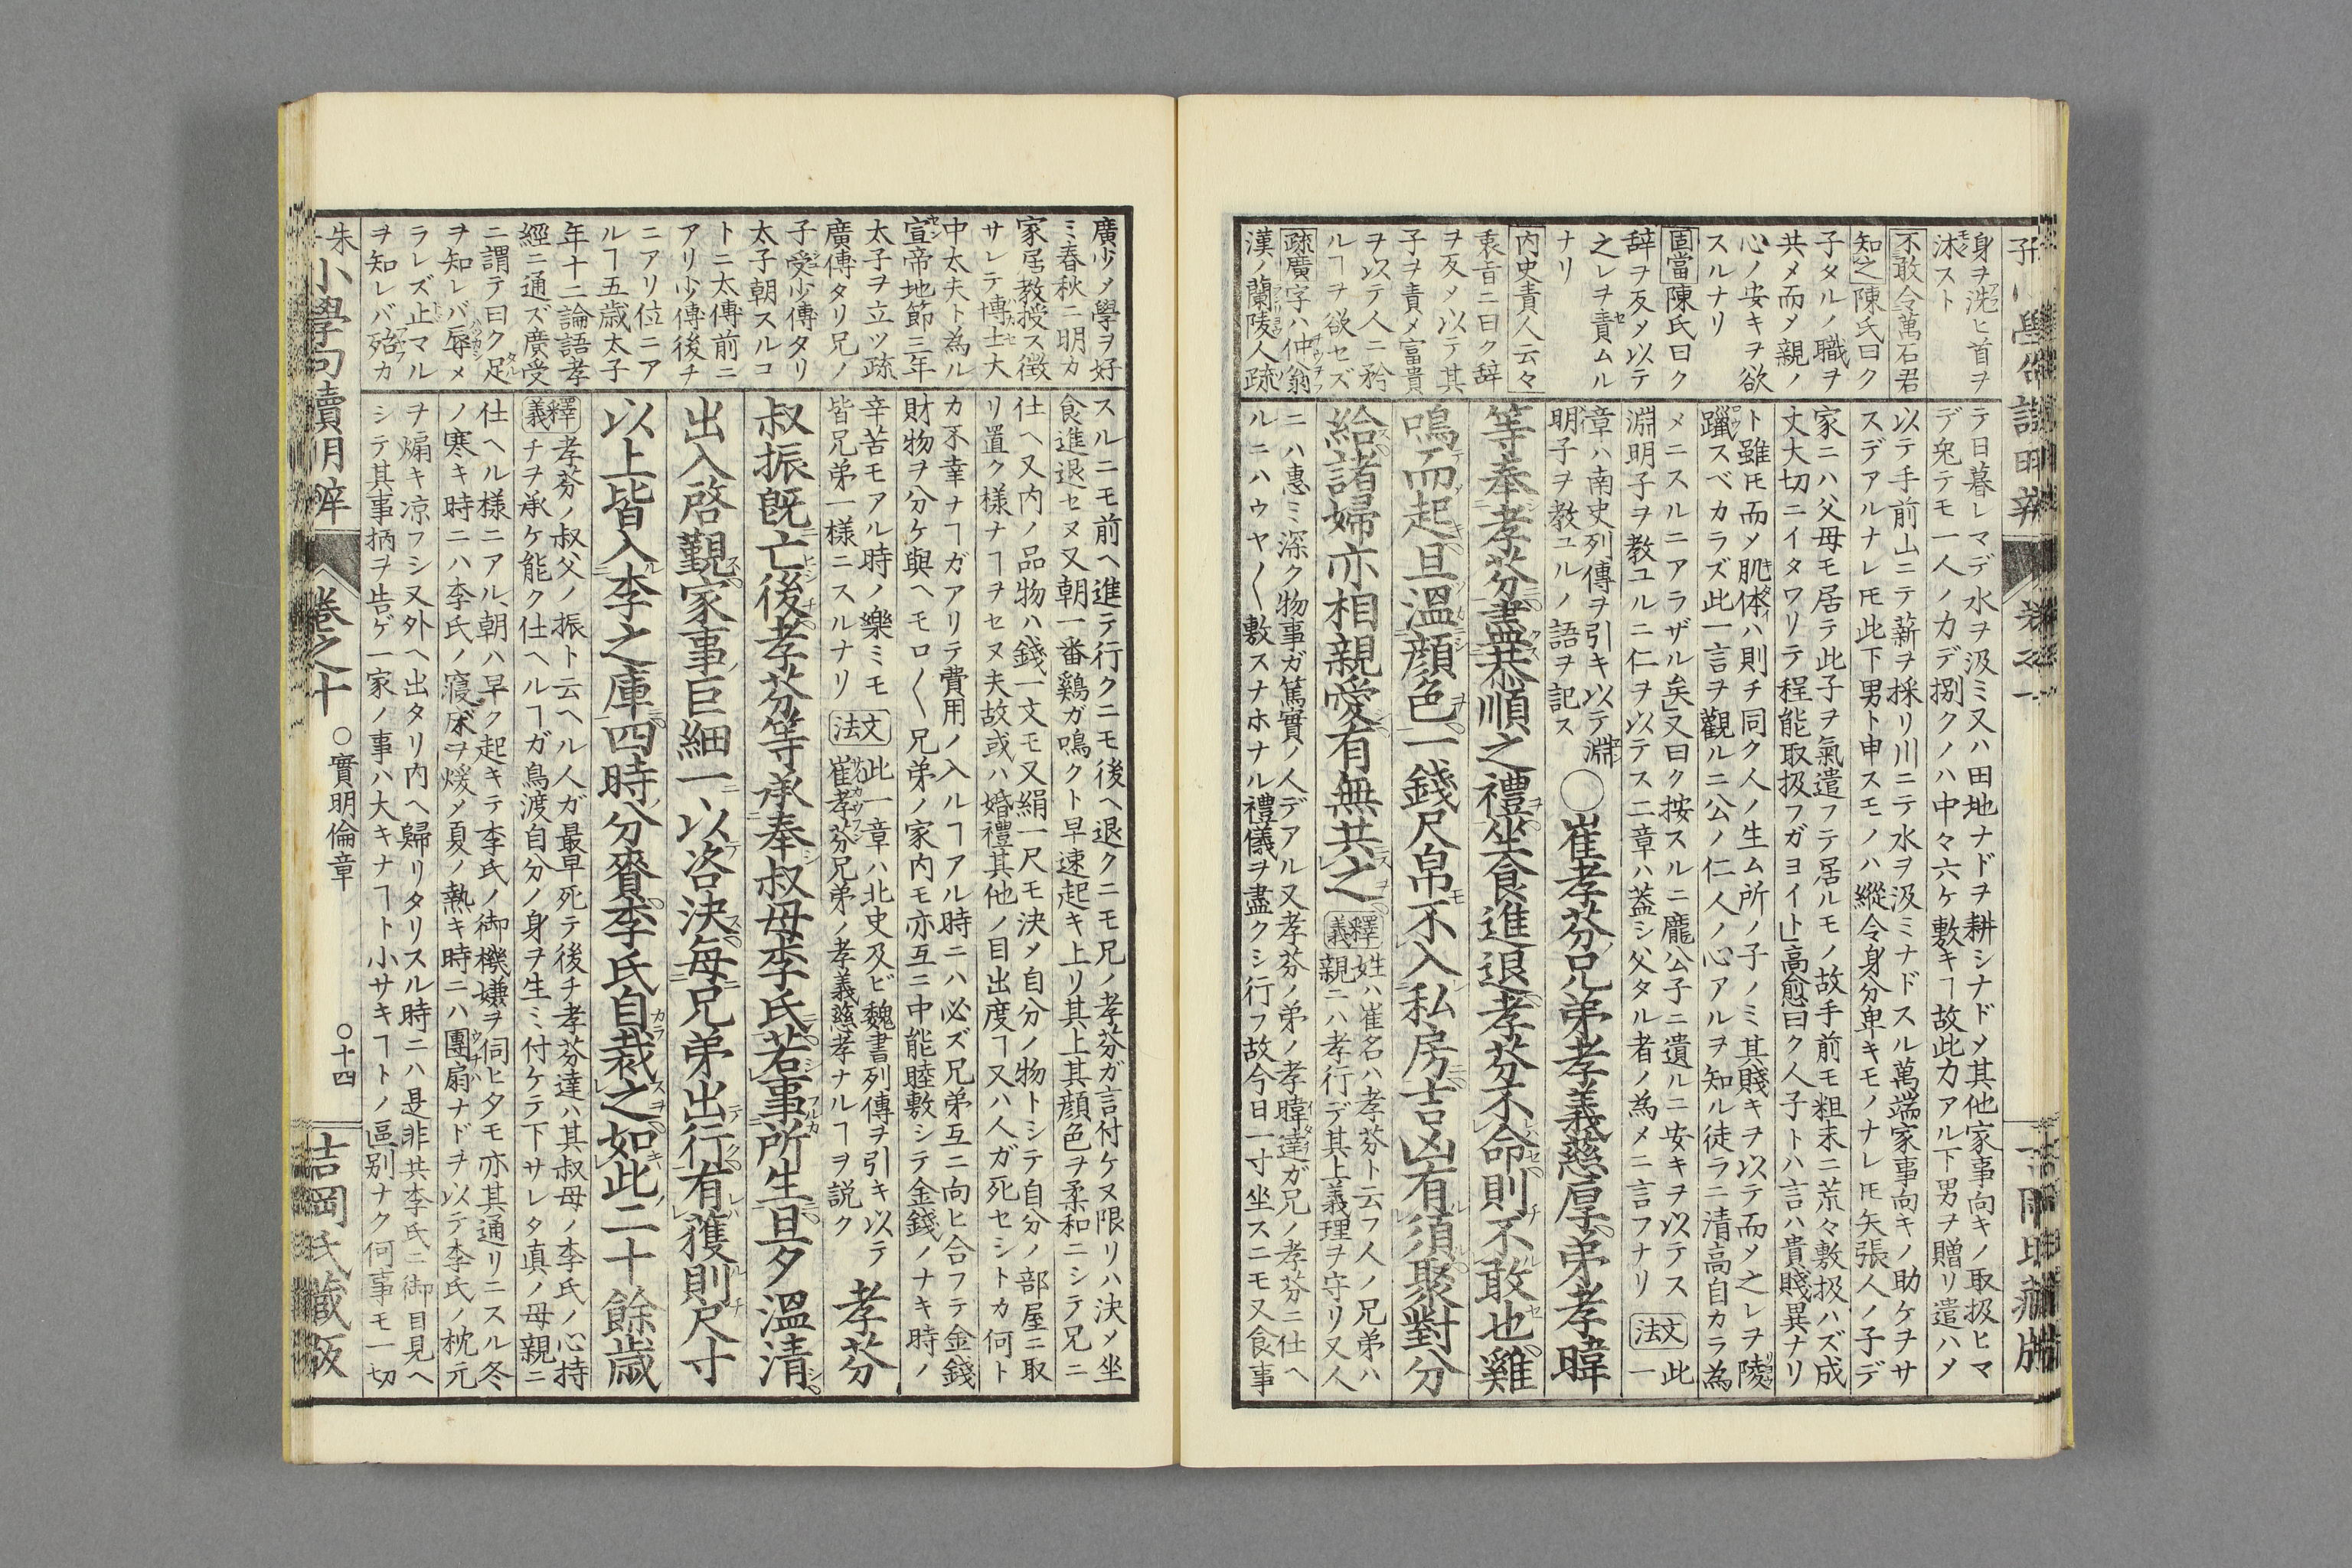 身ヲ洗ヒ首ヲ
沐スト
不敢令萬石君
知之陳氏曰ク
子タルノ職ヲ
共メ而メ親ノ
心ノ安キヲ欲
スルナリ
固當陳氏曰ク
辞ヲ反メ以テ
之レヲ責ムル
ナリ
内史責人云々
袁旨ニ曰ク辞
ヲ反メ以テ其
子ヲ責メ富貴
ヲ以テ人ニ矜
ルヿヲ欲セズ
疏廣字ハ仲翁
漢ノ蘭陵人疏
テ日暮レマデ水ヲ汲ミ又ハ田地ナドヲ耕シナドメ其他家事向キノ取扱ヒマ
デ兎テモ一人ノ力デ捌クノハ中々六ケ敷キヿ故此力アル下男ヲ贈リ遣ハメ
以テ手前山ニテ薪ヲ採リ川ニテ水ヲ汲ミナドスル萬端家事向キノ助ケヲサ
スデアルナレ𪜈此下男ト申スモノハ縱令身分卑キモノナレ𪜈矢張人ノ子デ
家ニハ父母モ居テ此子ヲ氣遣フテ居ルモノ故手前モ粗末ニ荒々敷扱ハズ成
丈大切ニイタワリテ程能取扱フガヨイト」高愈曰ク人子トハ言ハ貴賤異ナリ
ト雖𪜈而メ肌体ハ則チ同ク人ノ生ム所ノ子ノミ其賤キヲ以テ而メ之レヲ陵
躐スベカラズ此一言ヲ觀ルニ公ノ仁人ノ心アルヲ知ル徒ラニ清高自カラ為
メニスルニアラザル矣」又曰ク按スルニ龐公子ニ遺ルニ安キヲ以テス
淵明子ヲ教ユルニ仁ヲ以テス二章ハ蓋シ父タル者ノ為メニ言フナリ
文法 此一
章ハ南史列傳ヲ引キ以テ淵
明子ヲ教ユルノ語ヲ記ス
○崔孝芬兄弟孝義慈厚弟孝暐
等奉孝芬盡恭順之禮坐食進退孝芬不命則不敢也雞
鳴而起旦溫顔色一錢尺帛不入私房吉凶有須聚對分
給諸婦亦相親愛有無共之
釋義 姓ハ崔名ハ孝芬ト云フ人ノ兄弟ハ
親ニハ孝行デ其上義理ヲ守リ又人
ニハ惠ミ深ク物事ガ篤實ノ人デアル又孝芬ノ弟ノ孝暐達ガ兄ノ孝芬ニ仕ヘ
ルニハウヤ〱敷スナホナル禮儀ヲ盡クシ行フ故今日一寸坐スニモ又食事
廣少メ學ヲ好
ミ春秋ニ明カ
家居教授ス徴
サレテ博士大
中太夫ト為ル
宣帝地節三年
太子ヲ立ツ疏
廣傳タリ兄ノ
子受少傳タリ
太子朝スルコ
トニ太傳前ニ
アリ少傳後チ
ニアリ位ニア
ルヿ五歳太子
年十二論語孝
經ニ通ズ廣受
ニ謂テ曰ク足
ヲ知レバ辱メ
ラレズ止マル
ヲ知レバ殆カ
スルニモ前ヘ進テ行クニモ後ヘ退クニモ兄ノ孝芬ガ言付ケヌ限リハ決メ坐
食進退セヌ又朝一番鷄ガ鳴クト早速起キ上リ其上其顔色ヲ柔和ニシテ兄ニ
仕ヘ又内ノ品物ハ錢一文モ又絹一尺モ決メ自分ノ物トシテ自分ノ部屋ニ取
リ置ク様ナヿヲセヌ夫故或ハ婚禮其他ノ目出度ヿ又ハ人ガ死セシトカ何ト
カ不幸ナヿガアリテ費用ノ入ルヿアル時ニハ必ズ兄弟互ニ向ヒ合フテ金錢
財物ヲ分ケ與ヘモロ〱兄弟ノ家内モ亦互ニ中能睦敷シテ金錢ノナキ時ノ
辛苦モアル時ノ樂ミモ
皆兄弟一様ニスルナリ
文法 此一章ハ北史及ビ魏書列傳ヲ引キ以テ
崔孝芬兄弟ノ孝義慈孝ナルヿヲ説ク
孝芬
叔振既亡後孝芬等承奉叔母李氏若事所生旦夕溫凊
出入啓覲家事巨細一以咨決毎兄弟出行有獲則尺寸
以上皆入李之庫四時分賚李氏自裁之如此二十餘歳
釋義 孝芬ノ叔父ノ振ト云ヘル人ガ最早死テ後チ孝芬達ハ其叔母ノ李氏ノ心持
チヲ承ケ能ク仕ヘルヿガ鳥渡自分ノ身ヲ生ミ付ケテ下サレタ真ノ母親ニ
仕ヘル様ニアル朝ハ早ク起キテ李氏ノ御機嫌ヲ伺ヒ夕モ亦其通リニスル冬
ノ寒キ時ニハ李氏ノ寢床ヲ煖メ夏ノ熱キ時ニハ團扇ナドヲ以テ李氏ノ枕元
ヲ煽キ凉フシ又外ヘ出タリ内ヘ歸リタリスル時ニハ是非共李氏ニ御目見ヘ
シテ其事柄ヲ告ゲ一家ノ事ハ大キナヿト小サキヿトノ區別ナク何事モ一切
小學句讀明辨 卷之十 ○實明倫章 ○十四 吉岡氏藏版